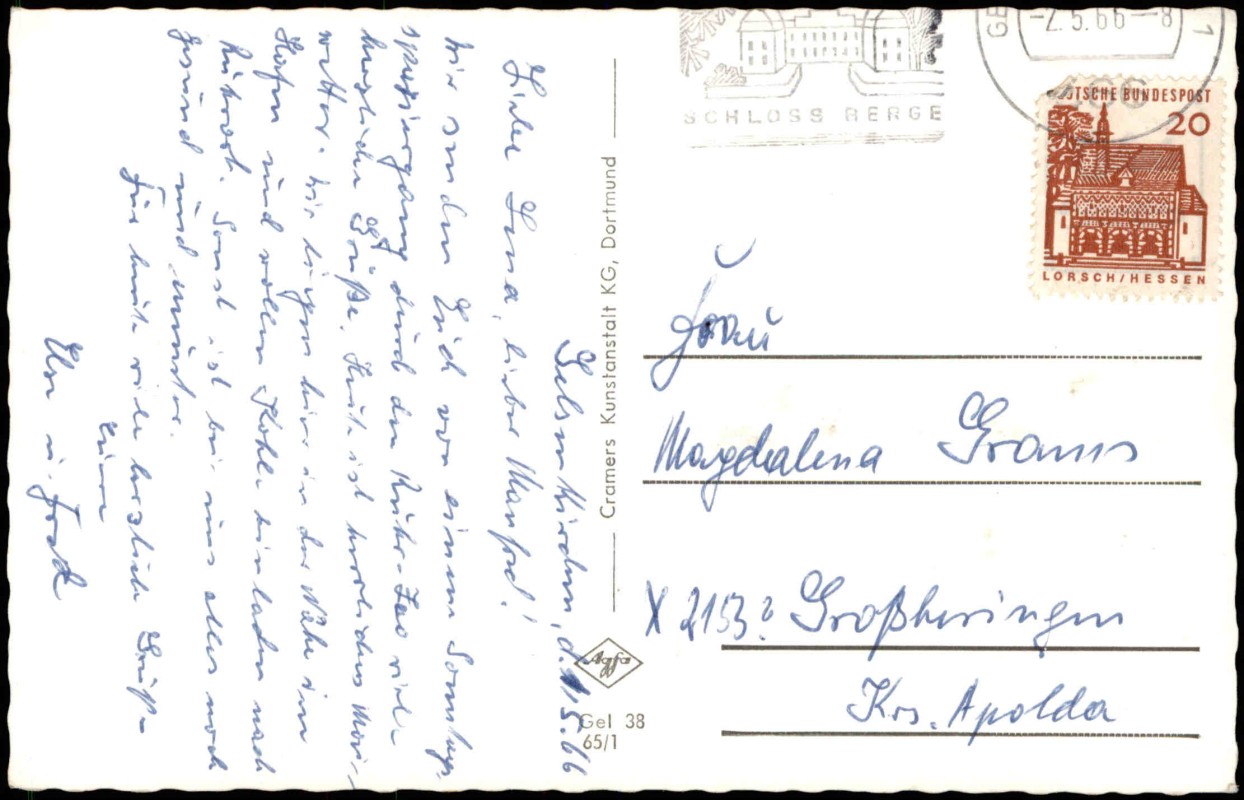 Gelsenkirchen, d. 1.5.66
Liebe Lena, lieber Manfred!
Wir senden Euch von einem Sonntags-
spaziergang durch den Ruhr-Zoo viele
herzliche Grüße. Heute ist herrliches Mai-
wetter. Wir liegen hier in der Nähe im
Hafen und wollen Kohle hinladen nach
Sonst ist bei uns alles noch
gesund und munter.
Für heute viele herzliche Grüße
Eure
u.
Cramers Kunstanstalt KG, Dortmund
Agfa
Gel 38
65/1
SCHLOSS BERGE
GE
-2.5.66-8
1
466
DEUTSCHE BUNDESPOST
20
LORSCH/HESSEN
Frau
Magdalena Grams
X 2153? Großheringen
Krs. Apolda